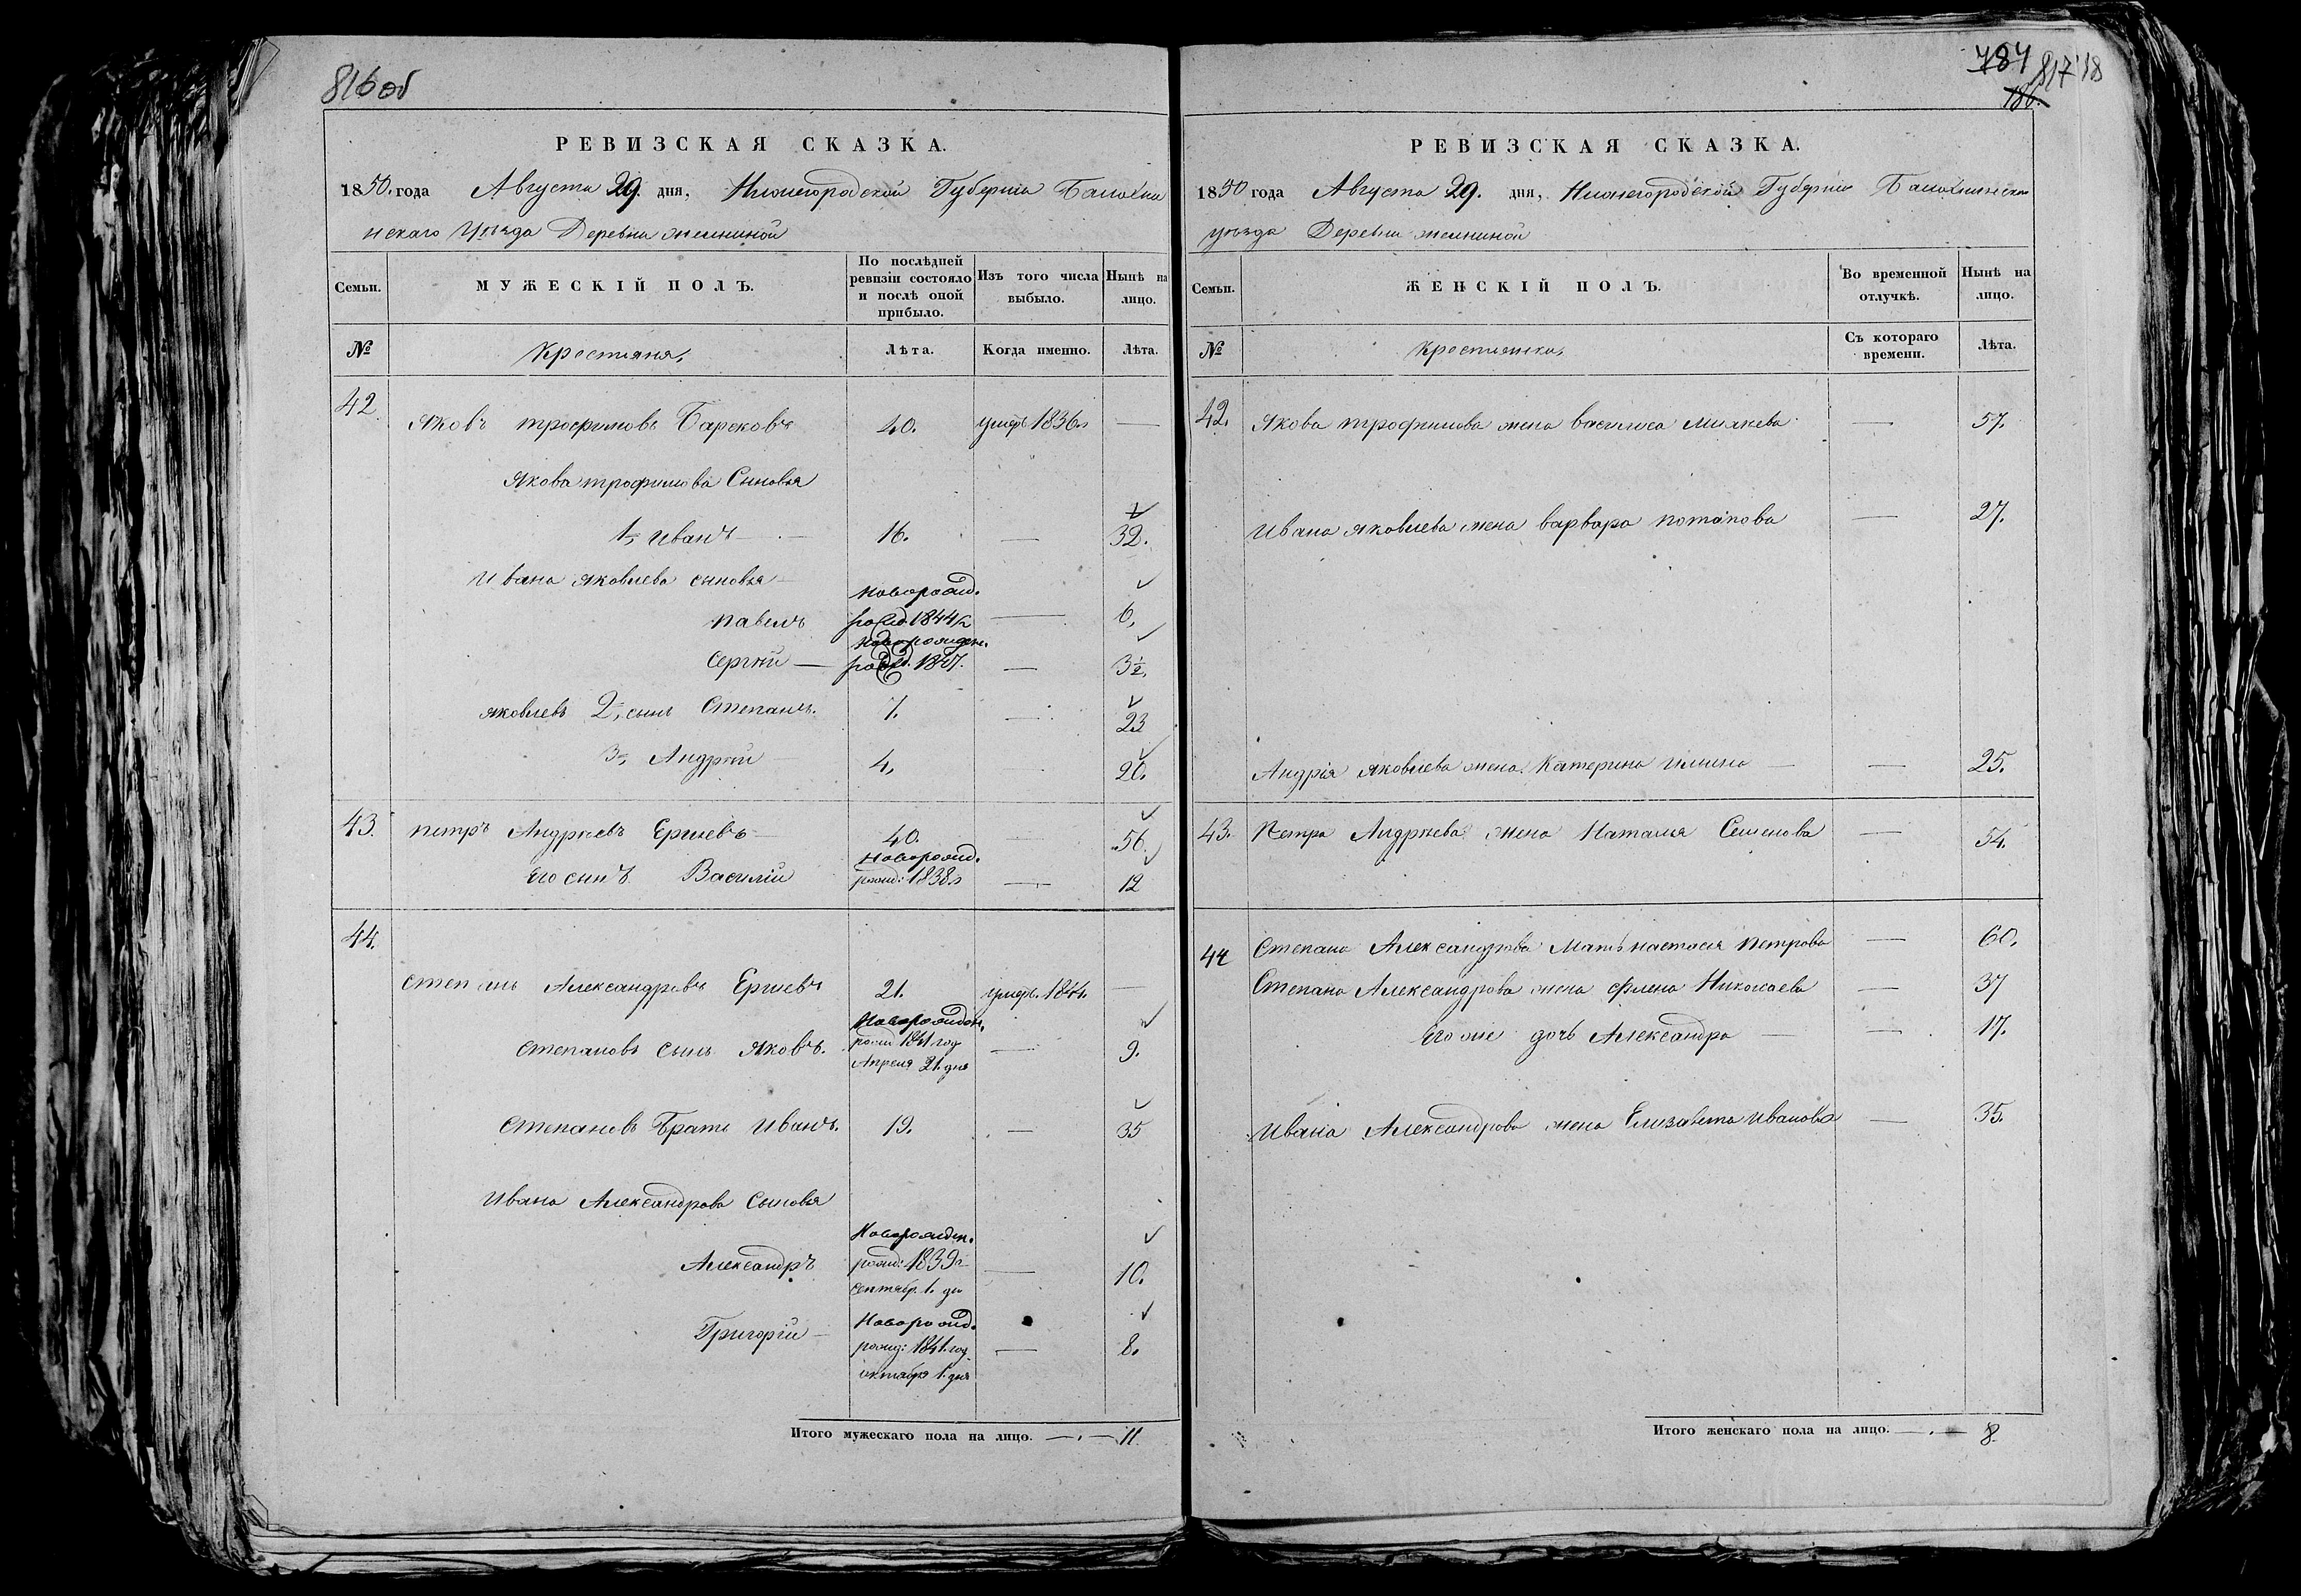 816 об
РЕВИЗСКАЯ СКАЗКА.
1850. года Августа 29. дня, Нижегородской Губернiи Балахни
нскаго Уѣзда Деревни
Семьи.
МУЖЕСКIЙ ПОЛЪ.
По послѣдней ревизiи состояло и послѣ оной прибыло.
Изъ того числа выбыло.
Нынѣ на лицо.
№
Крестьяня,
Лѣта.
Когда именно.
Лѣта.
42. Яковъ трофимовъ Барсковъ 40. умеръ 1836 —
Якова трофимова Сыновья
1й Иванъ — 16. — 32.
Ивана яковлева сыновья
новорожд.
павелъ рожд. 1844 — 6,
новорожден.
Сергѣй — рожд. 1847. — 3½.
яковлевъ 2й сынъ Степанъ. 7. — 23
3й Андрѣй 4, — 20.
43. петръ Андрѣевъ Ершевъ 40. — 56.
новорожд.
Его сынъ Василiй рожд: 1838 — 12
44.
степанъ Александровъ Ершевъ 21. умеръ. 1844. —
новорожден.
степановъ сынъ яковъ. рожд 1841 год — 9.
Апреля 21. дня
степановъ Братъ Иванъ. 19. — 35
Ивана Александрова Сыновья
новорожден.
Александръ рожд: 1839 — 10.
сентябр. 1. дн
новорожд.
Григорiй — рожд: 1841. год — 8.
октября 1. дня
Итого мужескаго пола на лицо. — 11.
787 817 18
186.
РЕВИЗСКАЯ СКАЗКА.
1850 года Августа 29. дня, Нижегородской Губернiи Балахнинскаго
уѣзда Деревни
Семьи.
ЖЕНСКIЙ ПОЛЪ.
Во временной отлучкѣ.
Нынѣ на лицо.
№
Крестьянки,
Съ котораго времени.
Лѣта.
42. Якова трофимова жена василиса — 57.
Ивана яковлева жена варвара потапова — 27.
Андрiя яковлева жена Катерина — 25.
43. Петра Андрѣева жена Наталья Семенова — 54.
44 Степана Александрова Мать настасья петрова — 60.
Степана Александрова жена Николаева — 37
Его же дочь Александра — 17.
Ивана Александрова жена Елизавета Иванова — 35.
Итого женскаго пола на лицо. — 8.